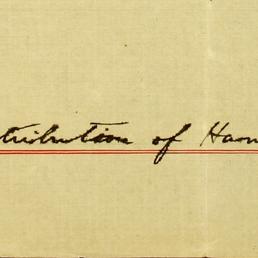 tribution of Ham